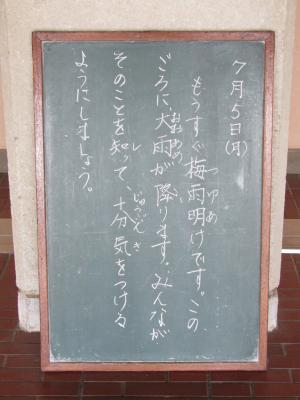 7月5日(月)
もうすぐ梅雨明けです。この
ごろに、大雨が降ります。みんなが
そのことを知って、十分気をつける
ようにしましょう。